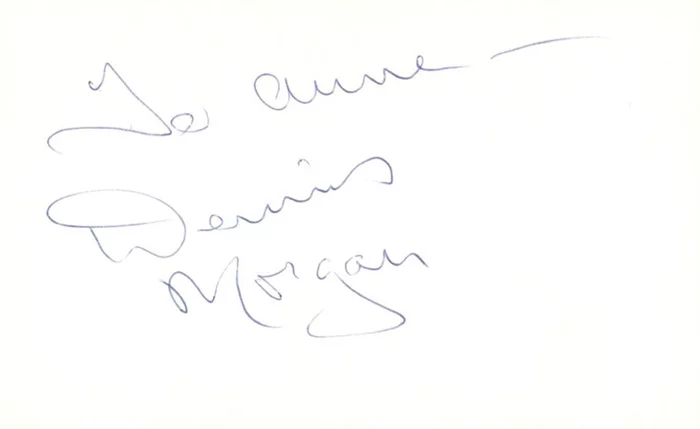 To Anne —
Dennis
Morgan